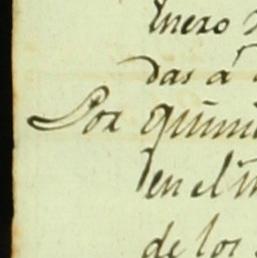 Enero
das á
Por quini
en el m
de los